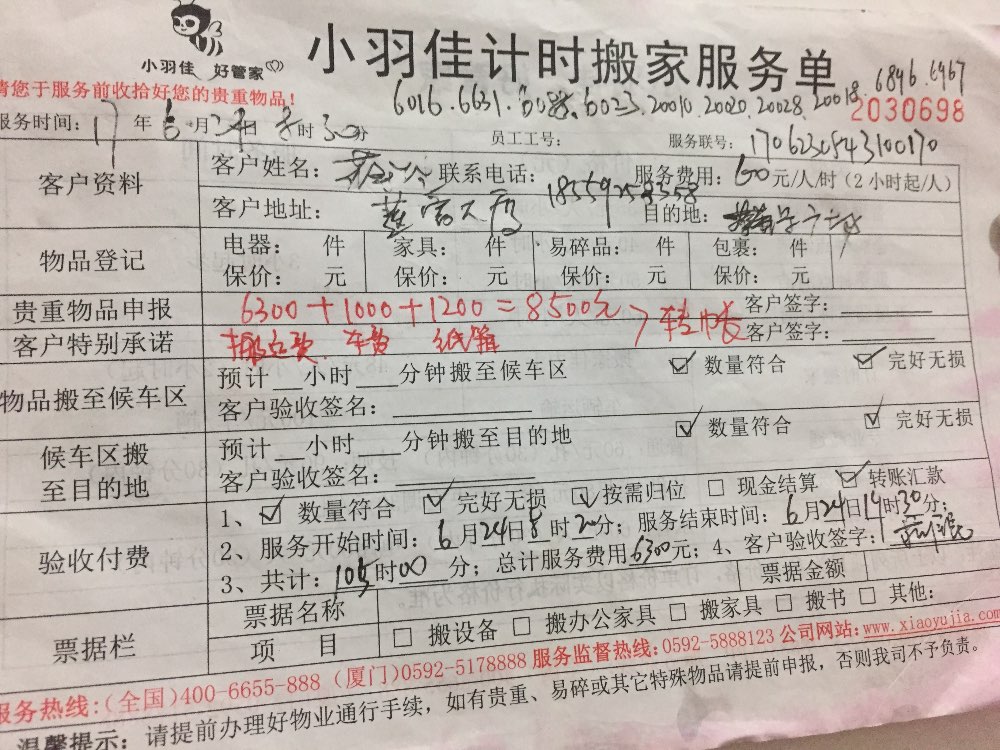 小羽佳 好管家
小羽佳计时搬家服务单
请您于服务前收拾好您的贵重物品！
6016.6631. 6023.20010.20020.20028.20018 6896.6967
2030698
服务时间：17年6月24日8时30分 员工工号： 服务联号：170623054310170
客户资料
客户姓名： 联系电话：18559258358 服务费用：60元/人/时（2小时起/人）
客户地址：蓝宫大厦 目的地：
物品登记
电器： 件 家具： 件 易碎品： 件 包裹： 件
保价： 元 保价： 元 保价： 元 保价： 元
贵重物品申报 6300+1000+1200=8500元 转帐 客户签字：
客户特别承诺 搬运费 车费 纸箱 客户签字：
物品搬至候车区
预计 小时 分钟搬至候车区 ☑ 数量符合 ☑ 完好无损
客户验收签名：
候车区搬至目的地
预计 小时 分钟搬至目的地 ☑ 数量符合 ☑ 完好无损
客户验收签名：
验收付费
1、☑ 数量符合 ☑ 完好无损 ☑ 按需归位 □ 现金结算 ☑ 转账汇款
2、服务开始时间：6月24日8时20分；服务结束时间：6月24日14时30分；
3、共计：105时00分；总计服务费用6300元；4、客户验收签字：
票据栏
票据名称 票据金额
项 目 □ 搬设备 □ 搬办公家具 □ 搬家具 □ 搬书 □ 其他：
服务热线：(全国)400-6655-888 (厦门)0592-5178888 服务监督热线：0592-5888123 公司网站：www.xiaoyujia.com
温馨提示：请提前办理好物业通行手续，如有贵重、易碎或其它特殊物品请提前申报，否则我司不予负责。